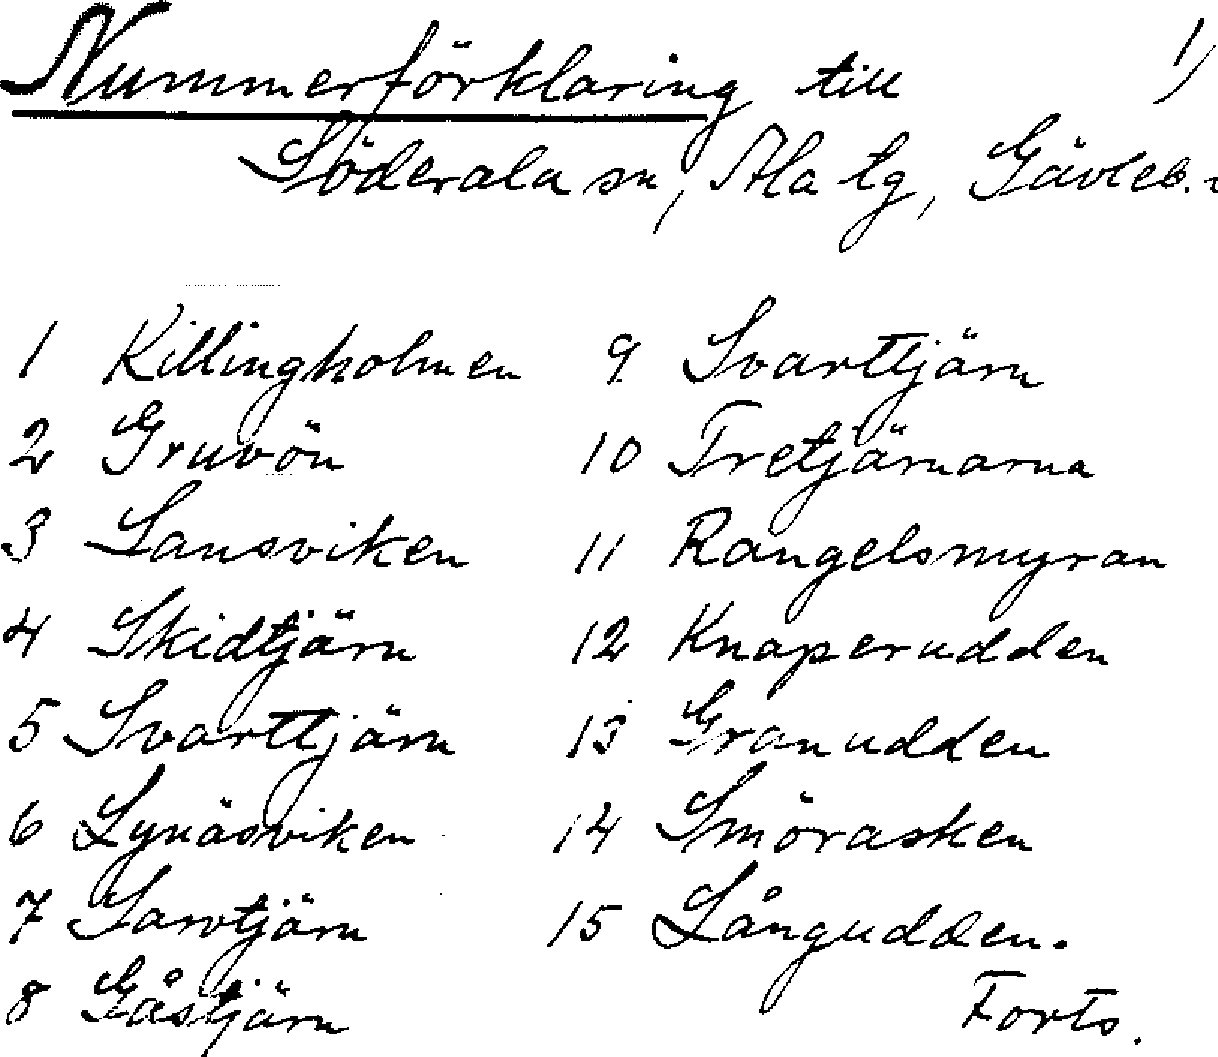 Nummerförklaring till 1)
Söderala sn, Ala tg, Gävleb.
1 Killingholmen
2 Gruvön
3 Sansviken
4 Skidtjärn
5 Svarttjärn
6 Lynäsviken
7 Sarvtjärn
8 Gåstjärn
9 Svarttjärn
10 Tretjärnarna
11 Rangelsmyran
12 Knaperudden
13 Granudden
14 Smörasken
15 Långudden.
Forts.